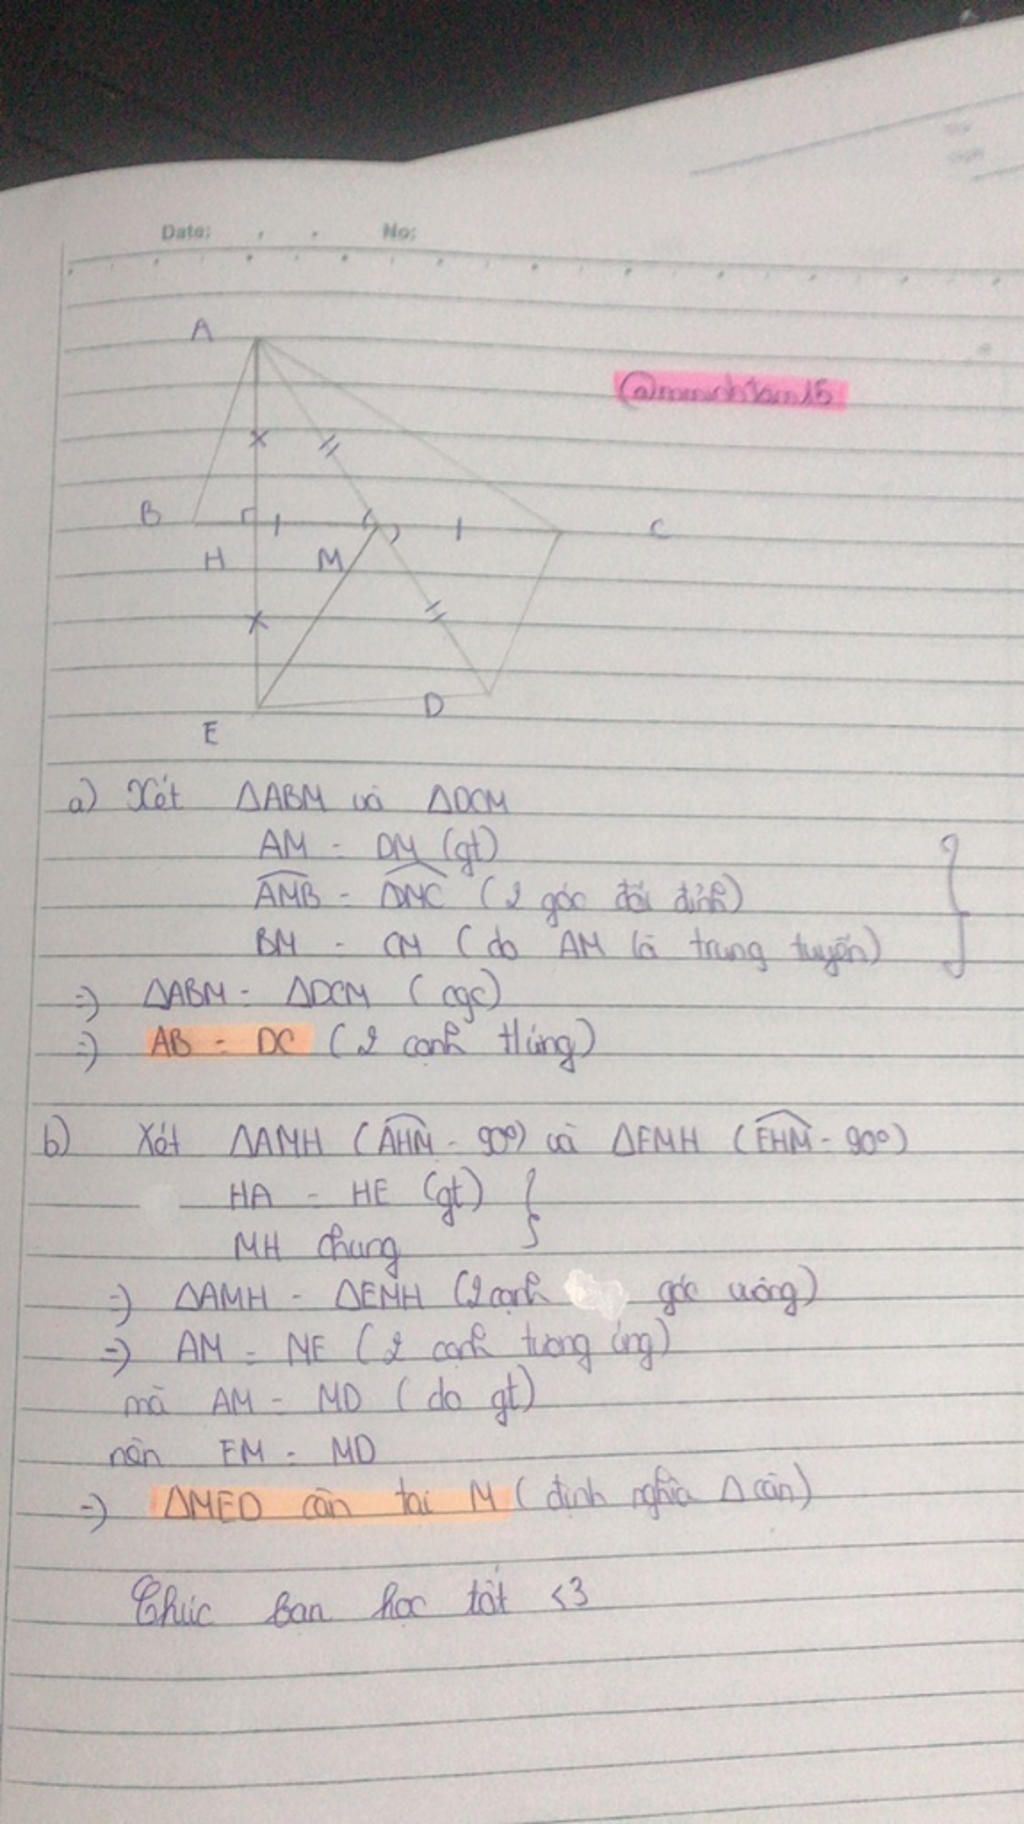 Date: No:
A
B
C
H
M
D
E
a) Xét ΔABM và ΔDCM
AM = DM (gt)
AMB = DMC (2 góc đối đỉnh)
BM = CM (do AM là trung tuyến)
=) ΔABM = ΔDCM (cgc)
=) AB = DC (2 cạnh t/úng)
b) Xét ΔAMH (AHM = 90°) và ΔEMH (EHM = 90°)
HA = HE (gt)
MH chung
=) ΔAMH = ΔEMH (2 cạnh góc vuông)
=) AM = ME (2 cạnh tương ứng)
mà AM = MD (do gt)
nên EM = MD
=) ΔMED cân tại M (định nghĩa Δ cân)
Chúc bạn học tốt <3